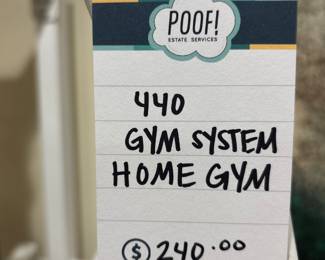 POOF!
ESTATE SERVICES
440
GYM SYSTEM
HOME GYM
$ 240.00